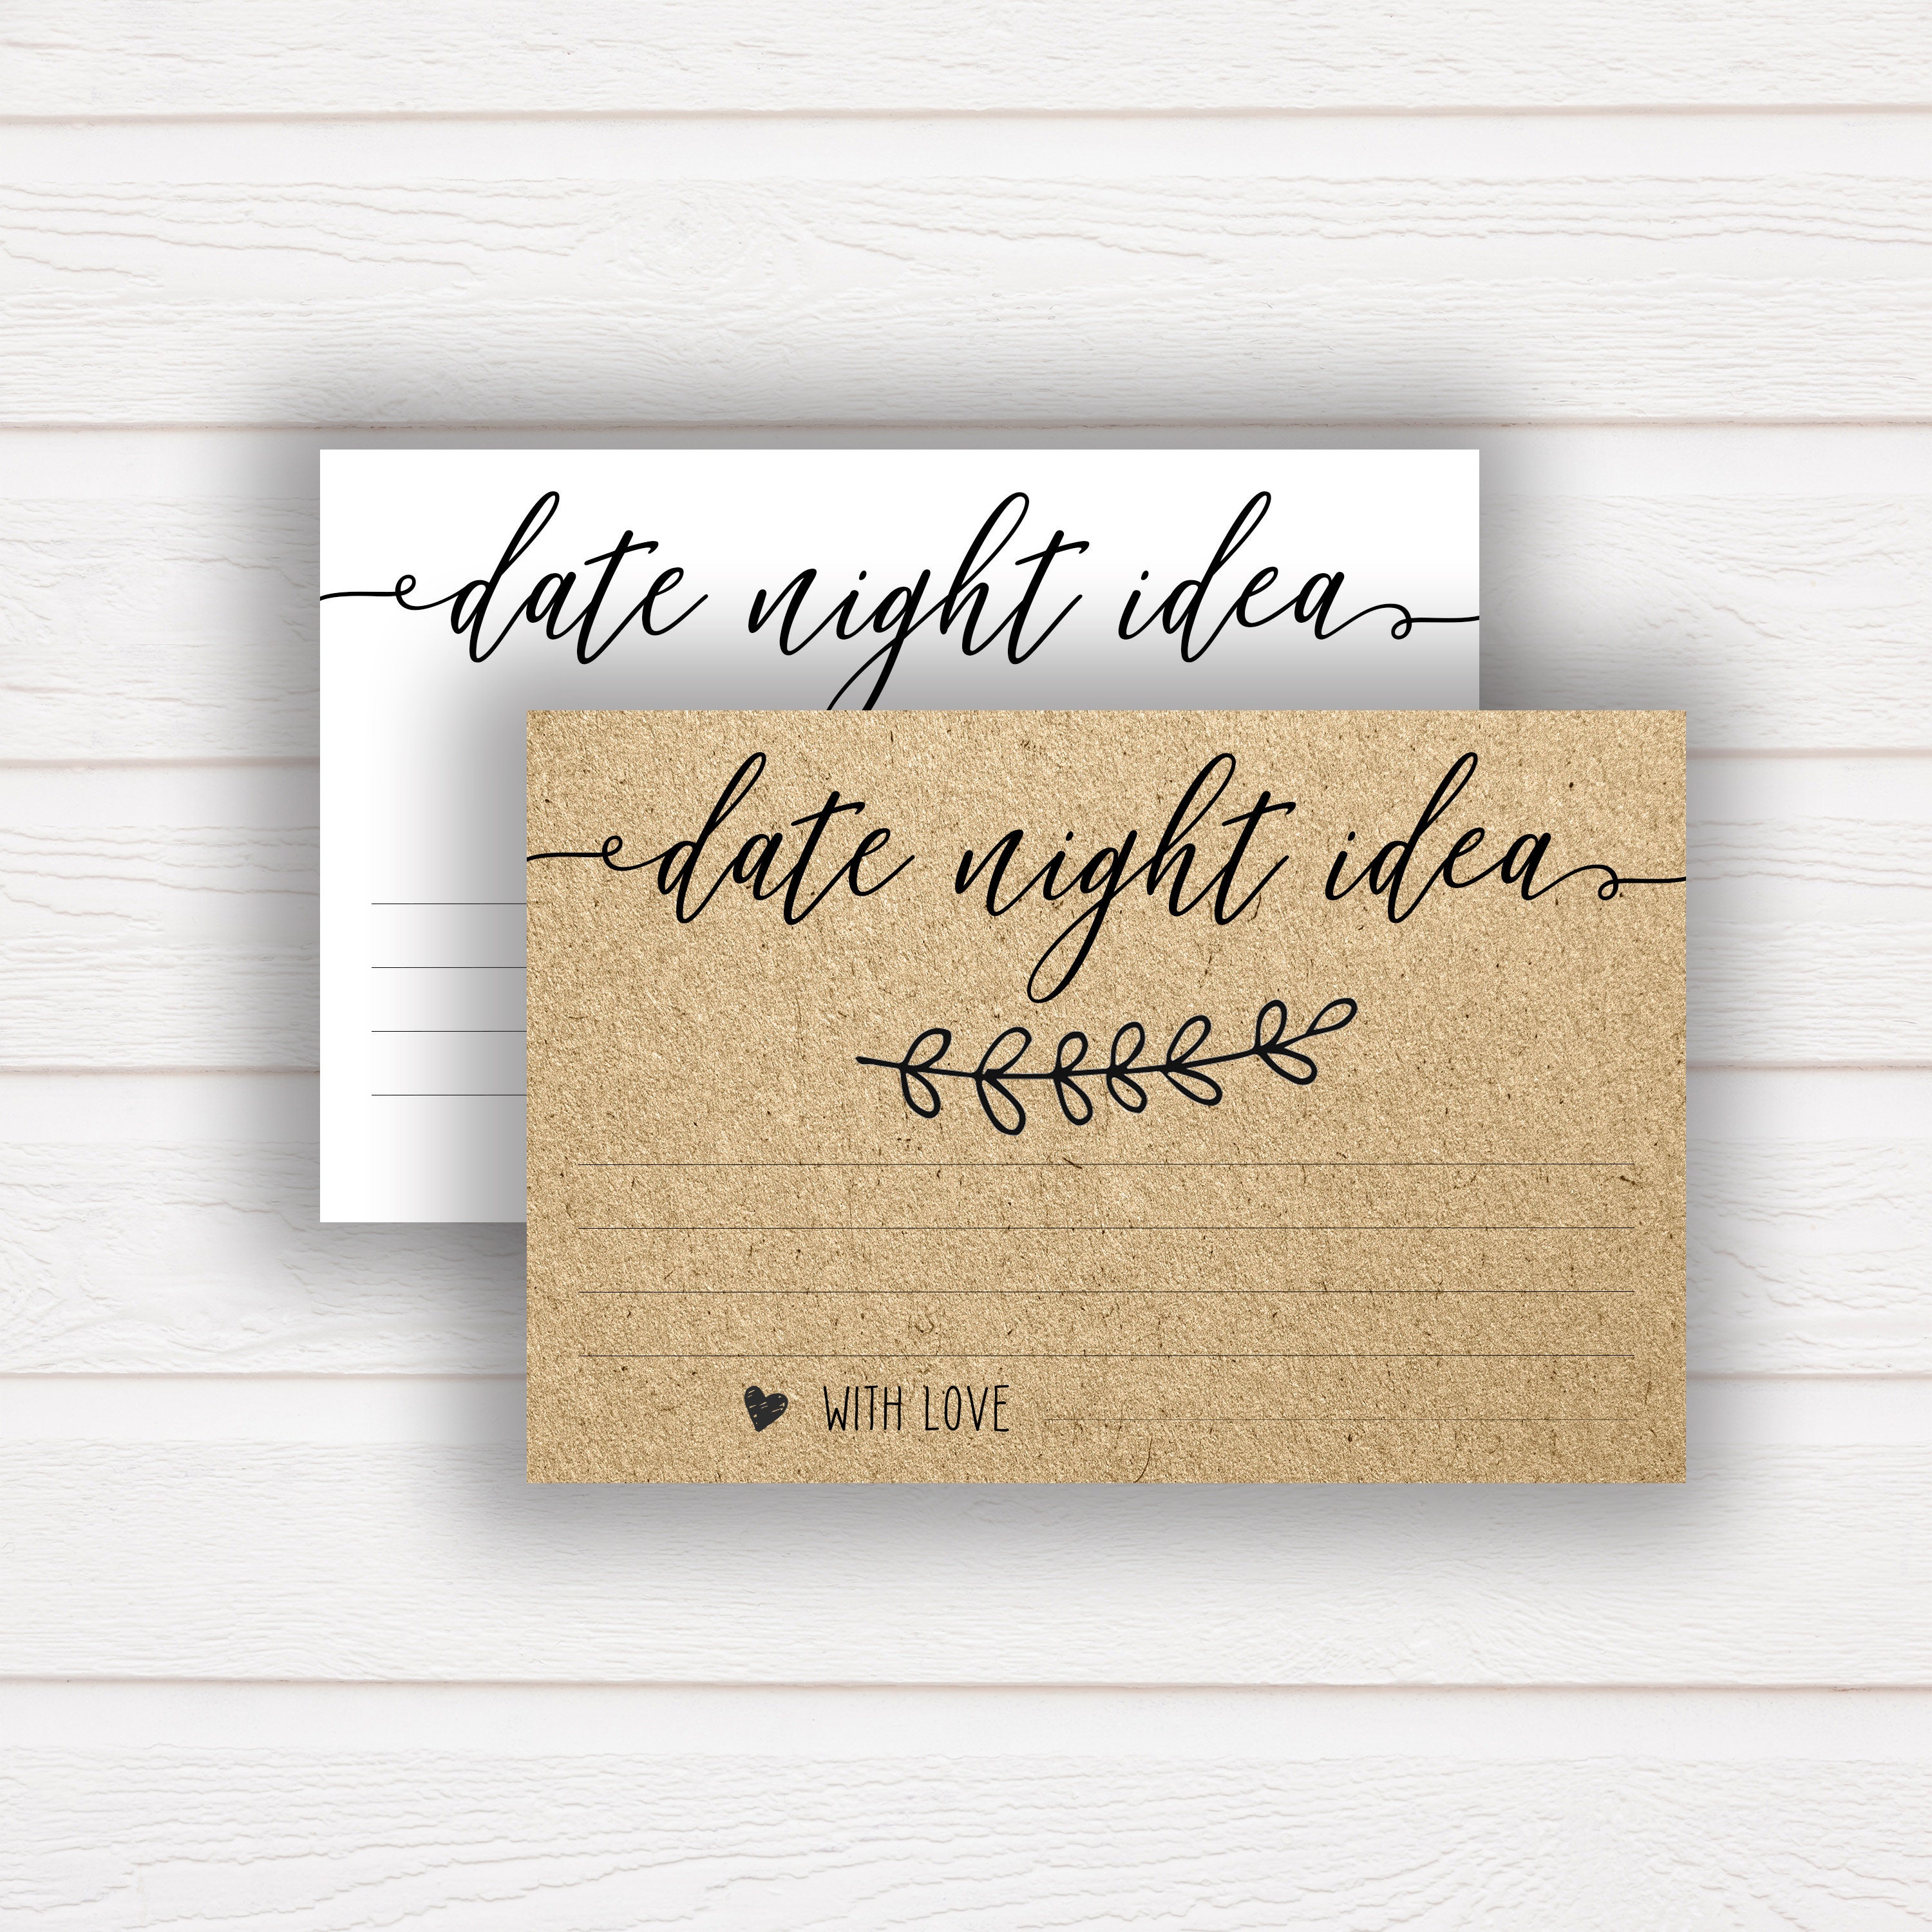 date night idea
date night idea
WITH LOVE